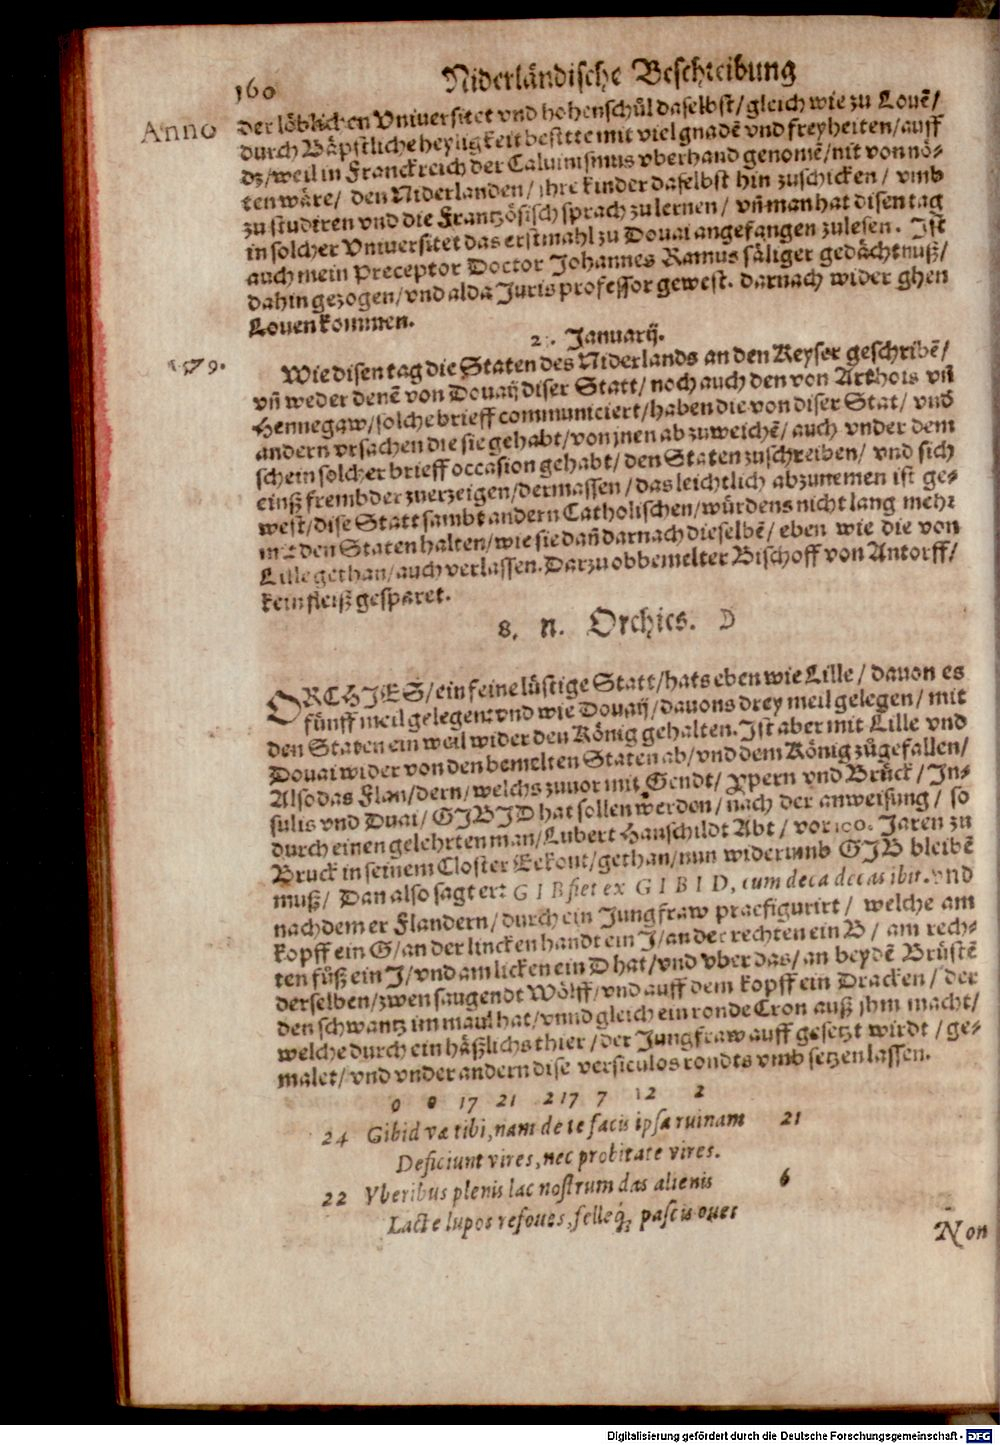 160 Niderländische Beschreibung
Anno
der löblichen Vniuersitet vnd hohenschül daselbst/ gleich wie zu Louẽ/
durch Bäpstliche heyligkeit besitte mit viel gnadẽ vnd freyheiten/ auff
dz/ weil in Franckreich der Caluinismus vberhand genomẽ/ nit von nö-
ten wäre/ den Niderlanden/ ihre kinder daselbst hin zuschicken/ vmb
zu studiren vnd die Frantzösisch sprach zu lernen/ vñ man hat disen tag
in solcher Vniuersitet das erst mahl zu Douai angefangen zulesen. Ist
auch mein Preceptor Doctor Johannes Ramus säliger gedächtnuß/
dahin gezogen/ vnd alda Juris professor gewest. darnach wider ghen
Louen kommen.
Januarij.
1579.
Wie disen tag die Staten des Niderlands an den Keyser geschribẽ/
vñ weder denẽ von Douaij diser Statt/ noch auch den von Arthois vñ
Hennegaw/ solche brieff communiciert/ haben die von diser Stat/ vnd
andern vrsachen die sie gehabt/ von jnen abzuweichẽ/ auch vnder dem
schein solcher brieff occasion gehabt/ den Staten zuschreiben/ vnd sich
einß frembder zuerzeigen/ dermassen/ das leichtlich abzunemen ist ge-
west/ dise Statt sambt andern Catholischen/ würdens nicht lang mehr
mit den Staten halten/ wie sie dañ darnach dieselbẽ/ eben wie die von
Lille gethan/ auch verlassen. Darzu obbemelter Bischoff von Antorff/
kein fleiß gesparet.
8. n. Orchies. D
ORCHIES/ ein feine lüstige Statt/ hats eben wie Lille/ dauon es
fünff meil gelegen: vnd wie Douaij/ dauons drey meil gelegen/ mit
den Staten ein weil wider den König gehalten. Ist aber mit Lille vnd
Douai wider von den bemelten Staten ab/ vnd dem König zügefallen/
Also das Flan/dern/ welchs zuuor mit Gendt/ Ypern vnd Brück/ In-
sulis vnd Duai/ GIBID hat sollen werden/ nach der anweisung/ so
durch einen gelehrten man/ Lubert Hauschildt Abt/ vor 100. Jaren zu
Bruck in seinem Closter Eekout/ gethan/ nun widerumb GIB bleibẽ
muß/ Dan also sagt er: GIB fiet ex GIBID, cum deca decas ibit. vnd
nach dem er Flandern/ durch ein Jungfraw praefigurirt/ welche am
kopff ein G/ an der lincken handt ein J/ an der rechten ein B/ am rech-
ten füß ein J/ vnd am licken ein D hat/ vnd vber das/ an beydẽ Brüstẽ
derselben/ zwen saugendt Wölff/ vnd auff dem kopff ein Dracken/ der
den schwantz im maul hat/ vnnd gleich ein ronde Cron auß jhm macht/
welche durch ein häßlichs thier/ der Jungfraw auff gesetzt wirdt/ ge-
malet/ vnd vnder andern dise versiculos rondts vmb setzen lassen.
0 0 17 21 2 17 7 12 2
24 Gibid væ tibi, nam de te facis ipsa ruinam 21
Deficiunt vires, nec probitate vires.
22 Vberibus plenis lac nostrum das alienis 6
Lacte lupos refoues, felleq; pascis oues
Non
Digitalisierung gefördert durch die Deutsche Forschungsgemeinschaft - DFG